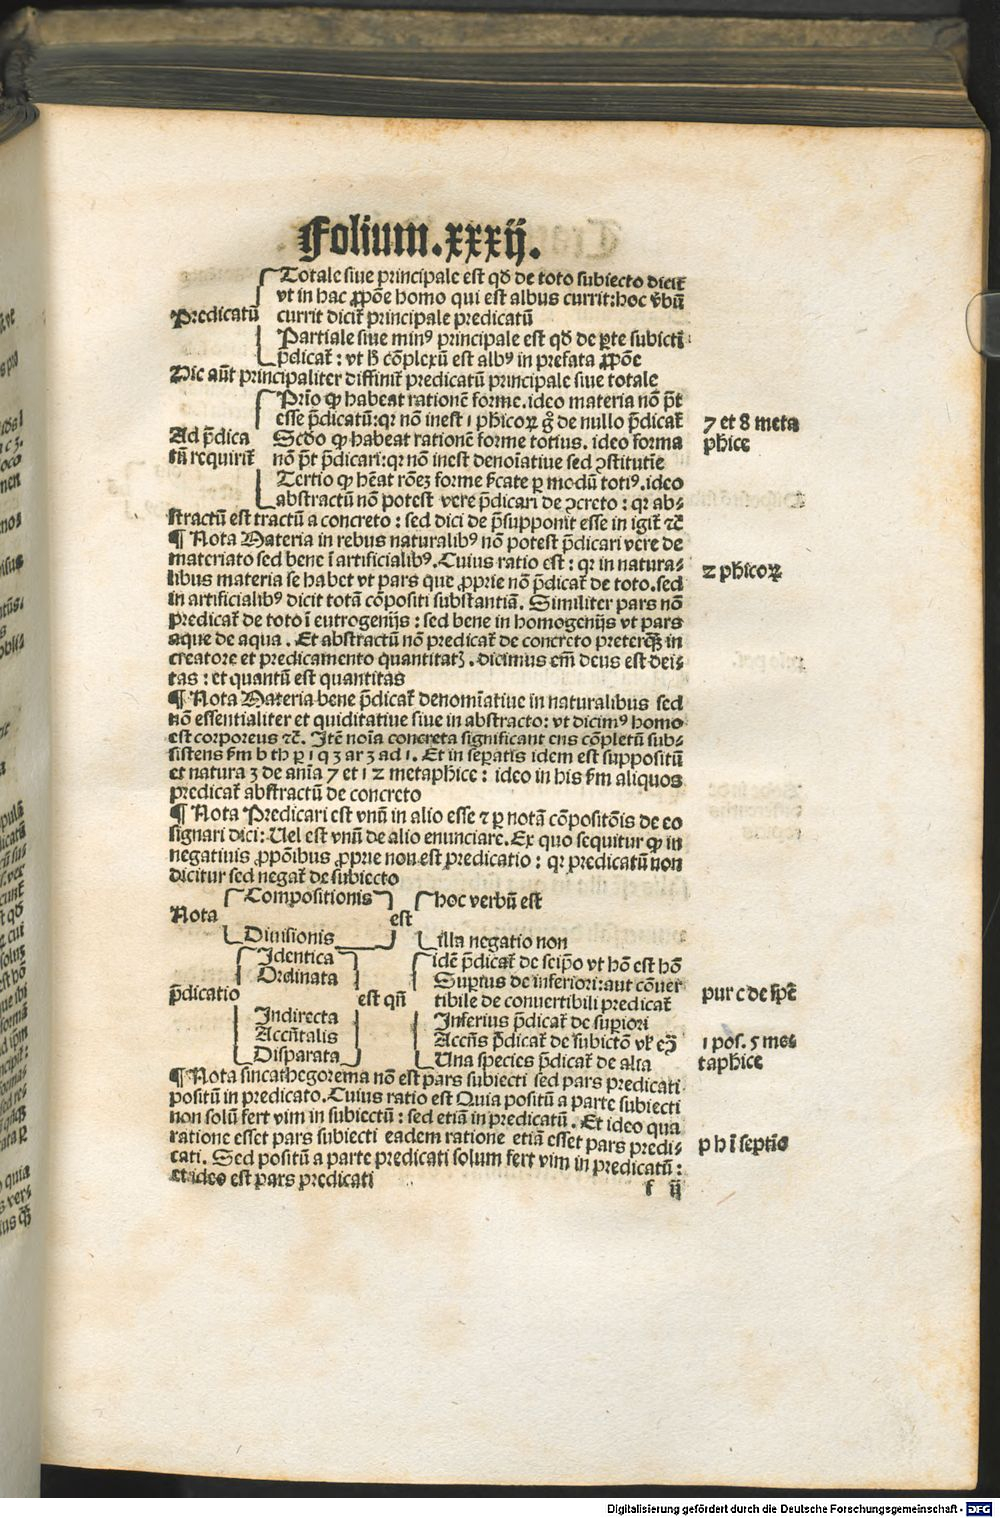 Folium.xxxij.
Totale siue principale est qď de toto subiecto dicit̃
vt in hac ꝓpōe homo qui est albus currit:hoc v̓bū
Predicatū currit dicit̃ principale predicatū
Partiale siue minꝰ principale est qď de ꝑte subiecti
p̄dicat̃ : vt h̄ cōplexū est albꝰ in prefata ꝓpōe
Hic aūt principaliter diffinit̃ predicatū principale siue totale
Prīo ꝙ habeat rationē forme.ideo materia nō p̄t
esse p̄dicatū:qꝛ nō inest 1 phicoꝝ g̊ de nullo p̄dicat̃
7 et 8 meta
phice
Ad p̄dica
tū requirit̃
Scďo ꝙ habeat rationē forme totius. ideo forma
nō p̄t p̄dicari:qꝛ nō inest denoīatiue sed ꝯstitutīe
Tertio ꝙ hēat rōeꝫ forme ſ̄cate ꝑ modū totiꝰ.ideo
abstractū nō potest vere p̄dicari de ꝯcreto : qꝛ ab-
stractū est tractū a concreto : sed dici de p̄supponit esse in igit̃ ⁊c̄
¶ Nota Materia in rebus naturalibꝰ nō potest p̄dicari vere de
materiato sed bene ī artificialibꝰ.Cuius ratio est : qꝛ in natura-
2 phicoꝝ
libus materia se habet vt pars que ꝓprie nō p̄dicat̃ de toto.sed
in artificialibꝰ dicit totā cōpositi substantiā. Similiter pars nō
predicat̃ de toto ī eutrogenijs : sed bene in homogenijs vt pars
aque de aqua . Et abstractū nō predicat̃ de concreto preterqꝫ in
creatore et predicamento quantitatꝭ . dicimus em̄ deus est dei-
tas : et quantū est quantitas
¶ Nota Materia bene p̄dicat̃ denomīatiue in naturalibus sed
nō essentialiter et quiditatiue siue in abstracto: vt dicimꝰ homo
est corporeus ⁊c̄. Itē noīa concreta significant ens cōpletū sub-
sistens ẜm b th ꝑ 1 q 3 ar 3 ad 1. Et in seꝑatis idem est suppositū
et natura 3 de anīa 7 et 1 2 metaphice : ideo in his ẜm aliquos
predicat̃ abstractū de concreto
¶ Nota Predicari est vnū in alio esse ⁊ ꝑ notā cōpositōis de eo
signari dici: Uel est vnū de alio enunciare. Ex quo sequitur ꝙ in
negatiuis ꝓpōibus ꝓprie non est predicatio : qꝛ predicatū non
dicitur sed negat̃ de subiecto
Compositionis hoc verbū est
Nota est
Diuisionis illa negatio non
Identica idē p̄dicat̃ de seip̄o vt hō est hō
Ordinata Suꝑius de inferiori:aut cōuer
p̄dicatio est qn̄ tibile de conuertibili predicat̃
pur c de sp̄e
Indirecta Inferius p̄dicat̃ de suꝑiori
Accn̄talis Accn̄s p̄dicat̃ de subiectō vł eꝯ̄
1 pos. 5 me-
taphice
Disparata Una species p̄dicat̃ de alia
¶ Nota sincathegorema nō est pars subiecti sed pars predicati
positū in predicato.Cuius ratio est Quia positū a parte subiecti
non solū fert vim in subiectū : sed etiā in predicatū . Et ideo qua
ratione esset pars subiecti eadem ratione etiā esset pars predi-
p h ī septīo
cati. Sed positū a parte predicati solum fert vim in predicatū :
et ideo est pars predicati
f ij
Digitalisierung gefördert durch die Deutsche Forschungsgemeinschaft - DFG